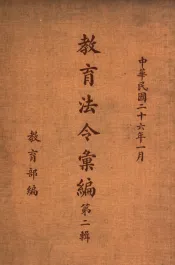 中華民國二十六年一月
教育法令彙編 第二輯
教育部編